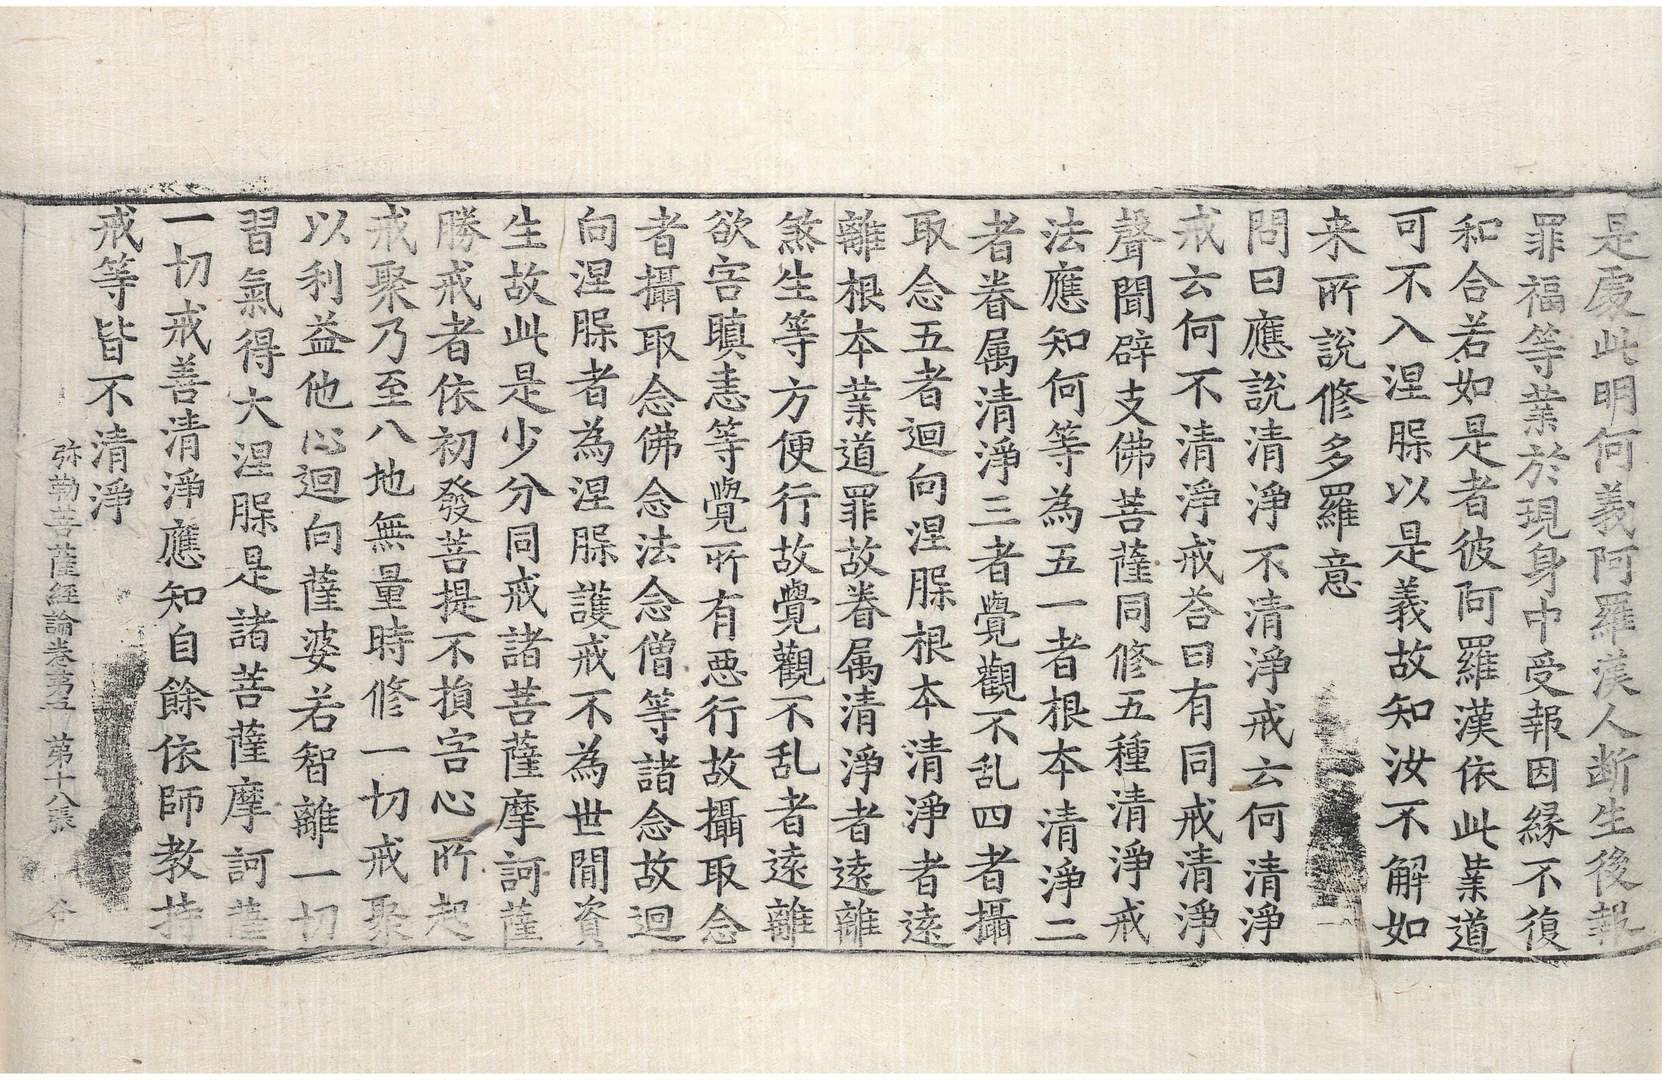 是處此明何義阿羅漢人断生後報
罪福等業於現身中受報因緣不復
和合若如是者彼阿羅漢依此業道
可不入涅槃以是義故知汝不解如
来所說修多羅意
問曰應說清淨不清淨戒云何清淨
戒云何不清淨戒荅曰有同戒清淨
聲聞辟支佛菩薩同修五種清淨戒
法應知何等為五一者根本清淨二
者眷属清淨三者覺觀不乱四者攝
取念五者迴向涅槃根本清淨者遠
離根本業道罪故眷属清淨者遠離
煞生等方便行故覺觀不乱者遠離
欲害瞋恚等覺所有惡行故攝取念
者攝取念佛念法念僧等諸念故迴
向涅槃者為涅槃護戒不為世間資
生故此是少分同戒諸菩薩摩訶薩
勝戒者依初發菩提不損害心所起
戒聚乃至八地無量時修一切戒聚
以利益他心迴向薩婆若智離一切
習氣得大涅槃是諸菩薩摩訶薩
一切戒善清淨應知自餘依師教持
戒等皆不清淨
弥勒菩薩經論卷第五 第十八張 谷